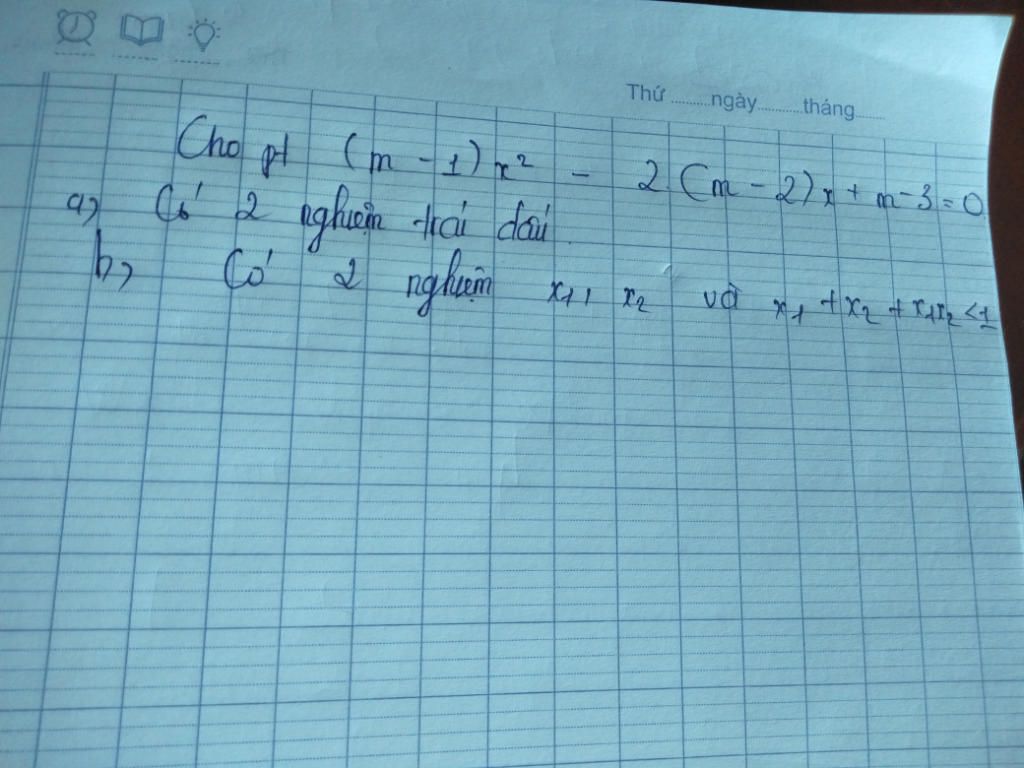 Thứ ..........ngày..........tháng......
Cho pt (m - 1) x² - 2 (m - 2) x + m - 3 = 0
a, Có 2 nghiệm trái dấu
b, Có 2 nghiệm x₁, x₂ và x₁ + x₂ + x₁x₂ < 1